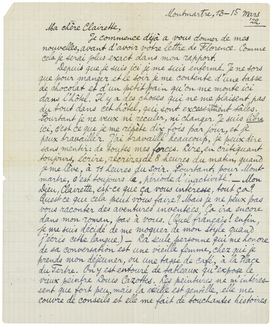 Montmartre, 13-15 Mars
Ma chère Clairette,
Je commence déjà à vous donner de mes
nouvelles, avant d'avoir votre lettre de Florence. Comme
cela je serai plus exact dans mon rapport.
Depuis que je suis ici je me suis enfermé. Je ne sors
que pour manger et le soir je me contente d'une tasse
de chocolat et d'un petit pain qu'on me monte ici
dans l'hôtel. Il y a des choses qui ne me plaisent pas
du tout dans cet hôtel, qui sont excessivement sales.
Pourtant je ne veux ni reculer, ni changer. Je suis libre
ici, c'est ce que je me répète dix fois par jour, et je
peux travailler. J'ai travaillé beaucoup, je peux dire
sans mentir: de toutes mes forces. Lire, en critiquant
toujours, écrire, réécrire de 8 heures du matin quand
je me lève, à 11 heures du soir. Pourtant pour Mont-
martre, c'est toujours
Dieu, Clairette, est-ce que ça vous intéresse, tout ça?
Qu'est-ce que cela peut vous faire? Mais je ne peux pas
vous raconter des aventures inventées; ça ira encore
dans mon roman, pas à vous. (Quel français! Enfin,
je me suis décidé de me moquer de mon style quand
j'écris cette langue) — La seule personne qui me honore
de sa conversation est une vieille femme, chez qui je
prends mon déjeuner, ou une tasse de café, à la Place
du Tertre. On y est entouré de tableaux qu'expose le
vieux peintre Louis Cazottes. Ses peintures ne m'intéres-
sent que tort peu, mais la vieille est gentille, elle me
couvre de conseils et elle me fait de touchantes histoires